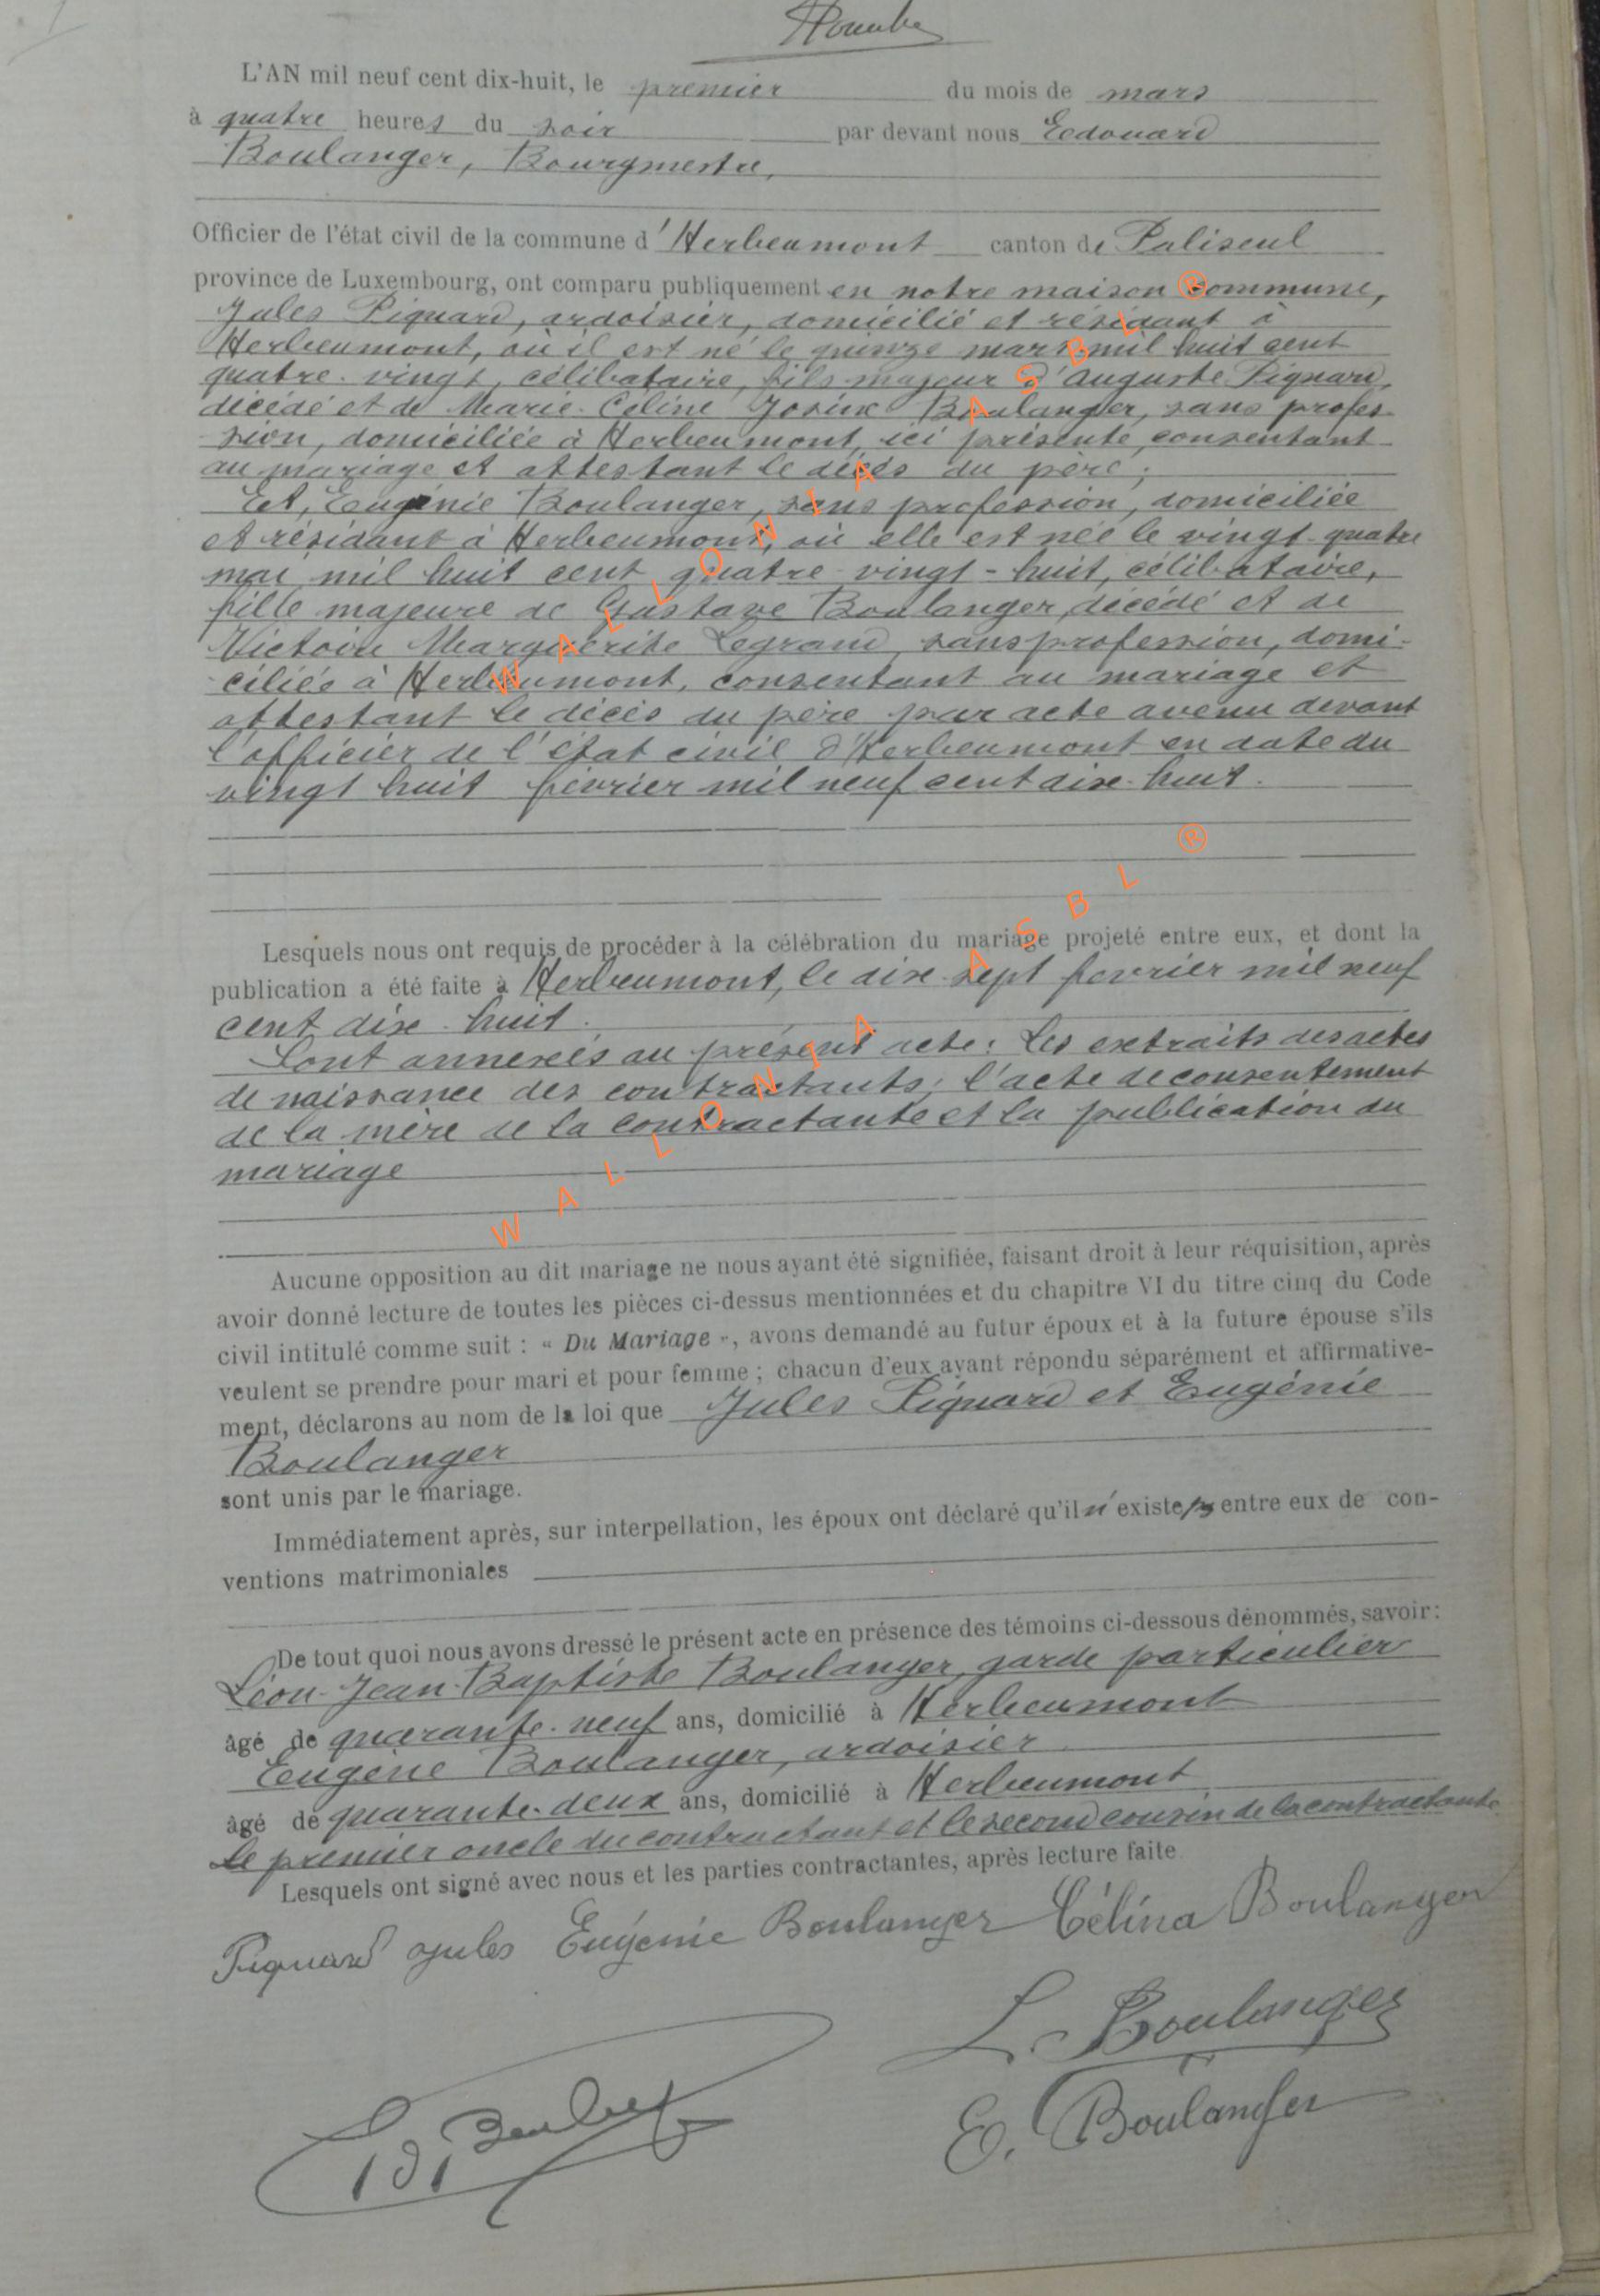 L'AN mil neuf cent dix-huit, le premier du mois de mars
à quatre heures du soir par devant nous Edouard
Boulanger, Bourgmestre,
Officier de l'état civil de la commune d'Herbeumont canton de Paliseul
province de Luxembourg, ont comparu publiquement en notre maison commune,
Jules Piquard, ardoisier, domicilié et résidant à
Herbeumont, où il est né le quinze mars mil huit cent
quatre-vingt, célibataire, fils majeur d'Auguste Piquard,
décédé et de Marie-Céline Josine Boulanger, sans profes-
sion, domiciliée à Herbeumont, ici présente, consentant
au mariage et attestant le décès du père;
Et, Eugénie Boulanger, sans profession, domiciliée
et résidant à Herbeumont, où elle est née le vingt-quatre
mai mil huit cent quatre-vingt-huit, célibataire,
fille majeure de Gustave Boulanger, décédé et de
Victoire Marguerite Legrand, sans profession, domi-
ciliée à Herbeumont, consentant au mariage et
attestant le décès du père par acte avenu devant
l'officier de l'état civil d'Herbeumont en date du
vingt huit février mil neuf cent dix-huit.
Lesquels nous ont requis de procéder à la célébration du mariage projeté entre eux, et dont la
publication a été faite à Herbeumont, le dix-sept février mil neuf
cent dix-huit.
Sont annexés au présent acte: Les extraits des actes
de naissance des contractants; l'acte de consentement
de la mère de la contractante et la publication du
mariage
Aucune opposition au dit mariage ne nous ayant été signifiée, faisant droit à leur réquisition, après
avoir donné lecture de toutes les pièces ci-dessus mentionnées et du chapitre VI du titre cinq du Code
civil intitulé comme suit : « Du Mariage », avons demandé au futur époux et à la future épouse s'ils
veulent se prendre pour mari et pour femme ; chacun d'eux ayant répondu séparément et affirmative-
ment, déclarons au nom de la loi que Jules Piquard et Eugénie
Boulanger
sont unis par le mariage.
Immédiatement après, sur interpellation, les époux ont déclaré qu'il n'existe pas entre eux de con-
ventions matrimoniales
De tout quoi nous avons dressé le présent acte en présence des témoins ci-dessous dénommés, savoir:
Léon-Jean-Baptiste Boulanger, garde particulier
âgé de quarante-neuf ans, domicilié à Herbeumont
Eugène Boulanger, ardoisier
âgé de quarante-deux ans, domicilié à Herbeumont
Le premier oncle du contractant et le second cousin de la contractante
Lesquels ont signé avec nous et les parties contractantes, après lecture faite
Piquard Jules Eugénie Boulanger Célina Boulanger
L. Boulanger
E. Boulanger
WALLONIA ASBL ®
WALLONIA ASBL ®